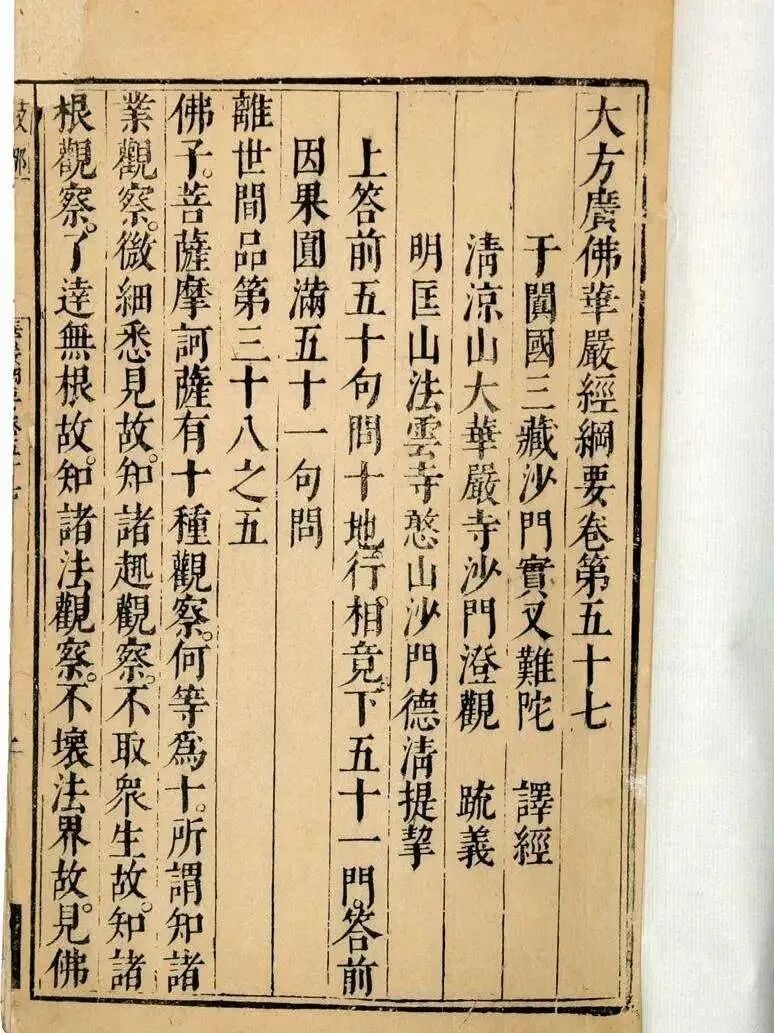 大方廣佛華嚴經綱要卷第五十七
于闐國三藏沙門實叉難陀 譯經
清涼山大華嚴寺沙門澄觀 疏義
明匡山法雲寺憨山沙門德清提挈
上答前五十句問十地行相竟下五十一門答前
因果圓滿五十一句問
離世間品第三十八之五
佛子。菩薩摩訶薩有十種觀察。何等爲十。所謂知諸
業觀察。微細悉見故。知諸趣觀察。不取衆生故。知諸
根觀察。了達無根故。知諸法觀察。不壞法界故。見佛